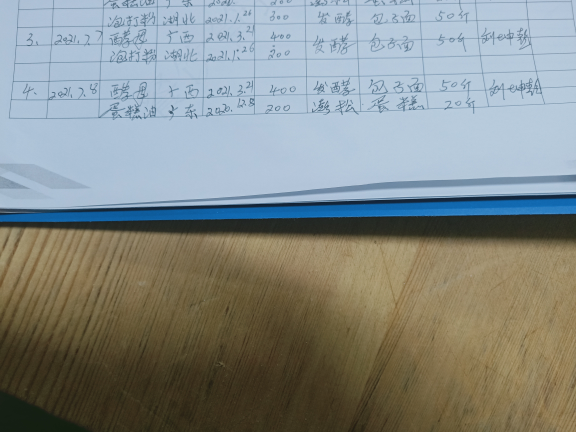 泡打粉 湖北 2021.1.26 300 发酵 包子面 50斤
3、 2021.7.7 酵母 广西 2021.3.21 400 发酵 包子面 50斤
泡打粉 湖北 2021.1.26 200
4、 2021.7.8 酵母 广西 2021.3.21 400 发酵 包子面 50斤
蛋糕油 广东 2020.12.8 200 蓬松 蛋糕 20斤